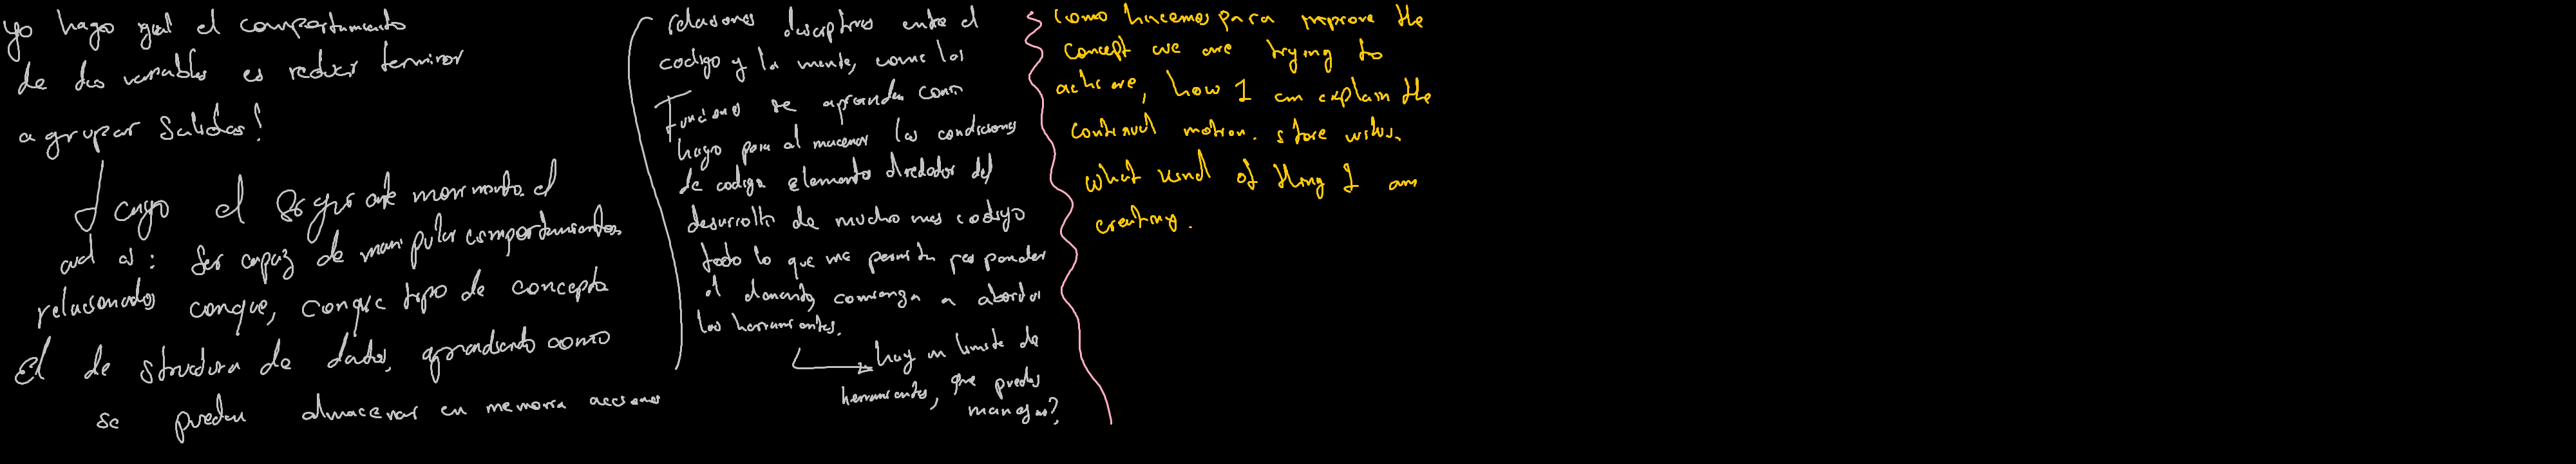 yo hago igual el comportamiento
de dos variables es reducir terminor
agrupar salidas!
el siguiente movimiento. el
cual es: ser capaz de manipular comportamientos
relacionados conque, conque tipo de concepto
El de structura de datos, aprendiendo como
se pueden almacenar en memoria acciones
relaciones descriptivas entre el
codigo y la mente, como los
Funciones se aprenden como
hago para al macenar las condiciones
de codigo elemento alrededor del
desarrollo de mucho mas codigo
todo lo que me permita responder
comienza a abordar
las herramientas.
hay un limite de
herramientas, que puedas
manejar?
como hacemos para improve the
concept we are trying to
achieve, how I can explain the
continual motion. store
what kind of thing I am
creating.